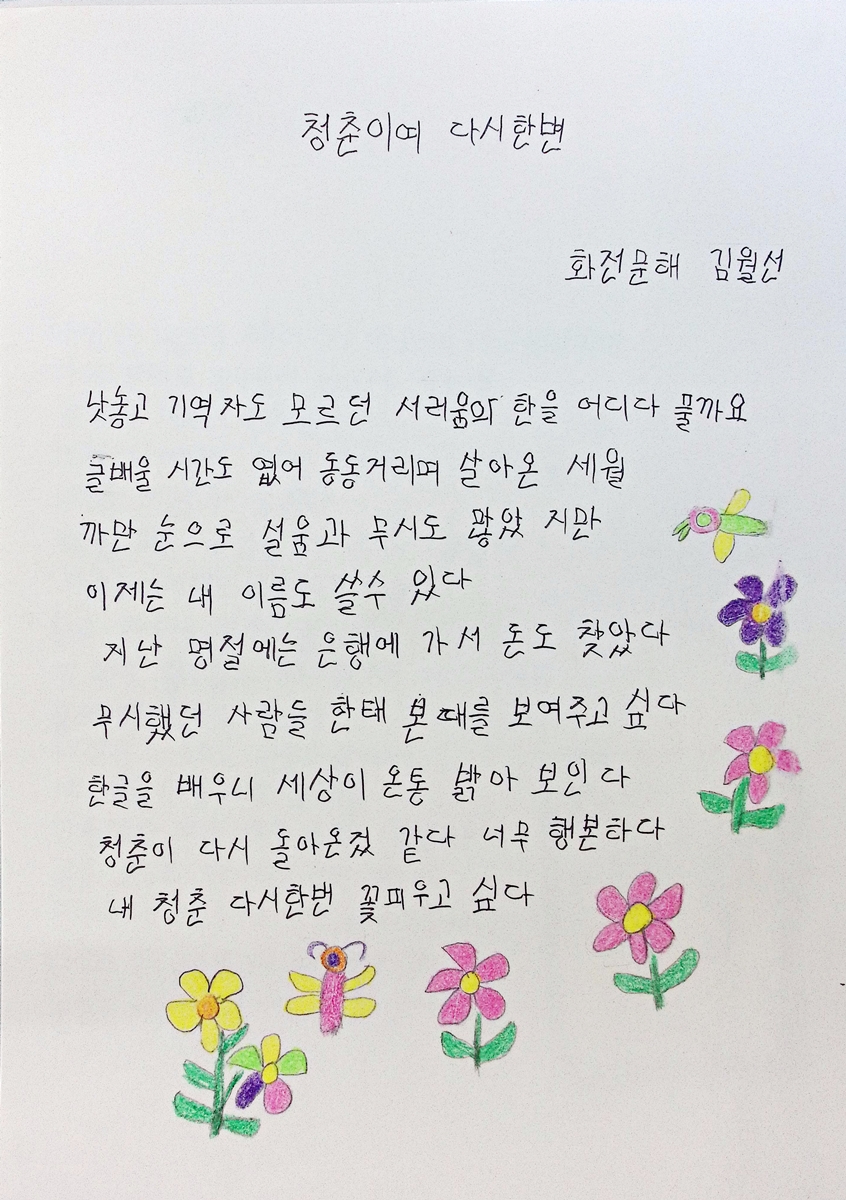 청춘이여 다시한변
화전문해 김월선
낫놓고 기역자도 모르던 서러움의 한을 어디다 풀까요
글배울 시간도 없어 동동거리며 살아온 세월
까만 눈으로 설움과 무시도 많았 지만
이제는 내 이름도 쓸수 있다
지난 명절에는 은행에 가서 돈도 찾았다
무시했던 사람들 한태 본때를 보여주고 싶다
한글을 배우니 세상이 온통 밝아 보인다
청춘이 다시 돌아온겄 같다 너무 행복하다
내 청춘 다시한번 꽃피우고 싶다